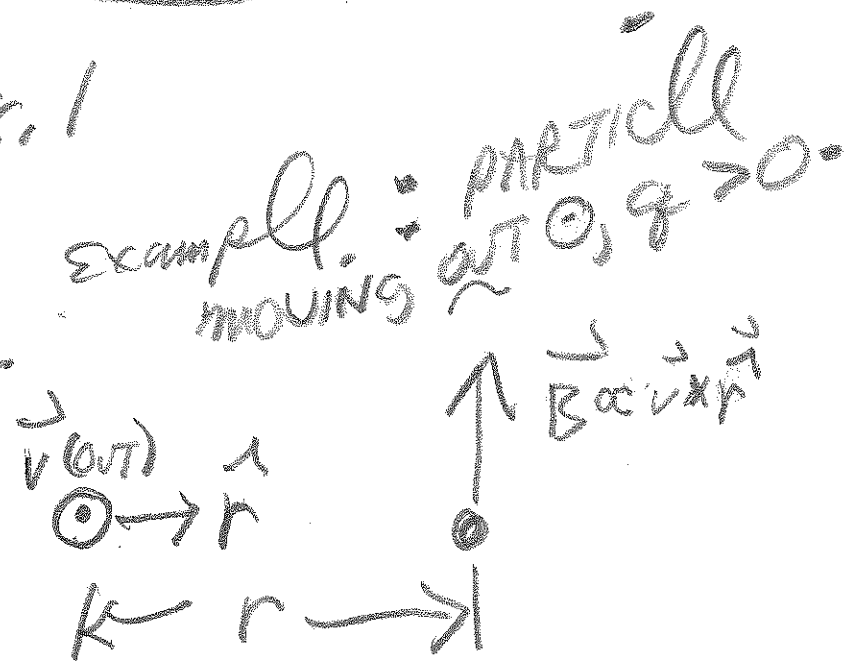 r, 1
Example: PARTICLE
MOVING OUT ⊙, q > 0.
B⃗ ∝ v⃗ × r̂
v⃗ (OUT)
r̂
r